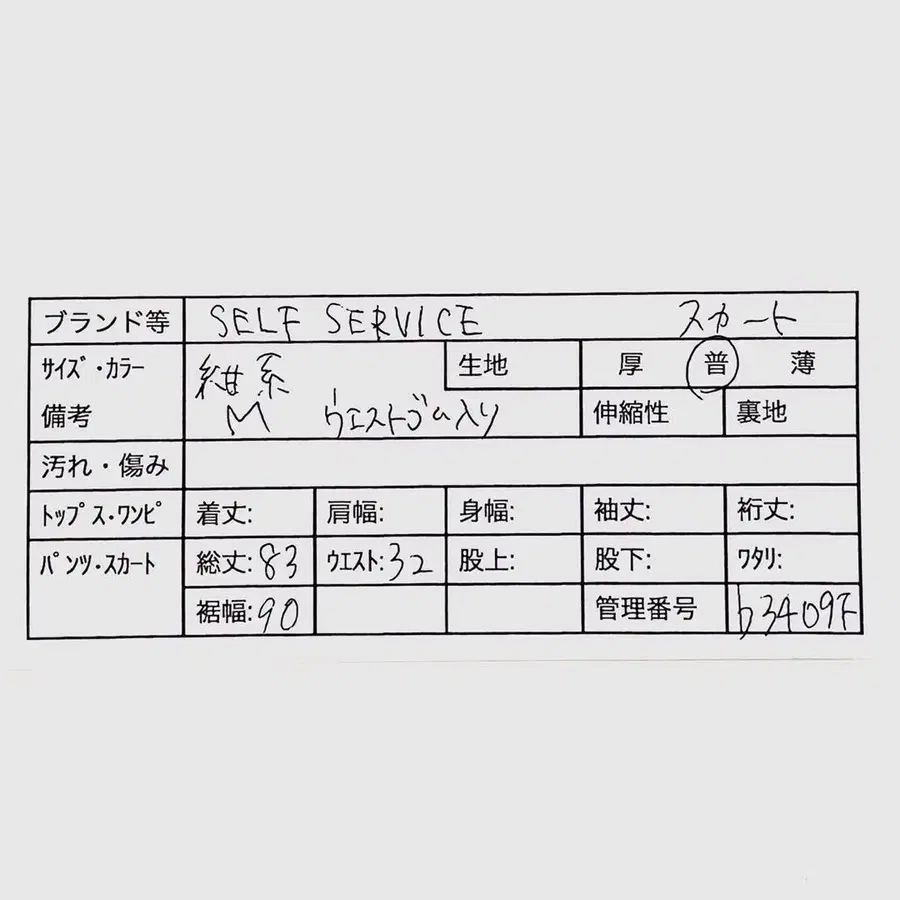 ブランド等 SELF SERVICE スカート
サイズ・カラー 紺系 生地 厚 普 薄
備考 M ウエストゴム入り 伸縮性 裏地
汚れ・傷み
トップス・ワンピ 着丈: 肩幅: 身幅: 袖丈: 裄丈:
パンツ・スカート 総丈:83 ウエスト:32 股上: 股下: ワタリ:
裾幅:90 管理番号 b3409F